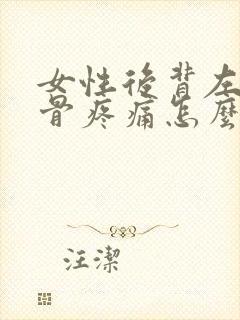 女性後背左
骨疼痛怎麼
汪潔